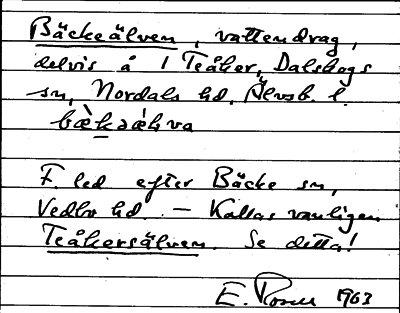 Bäckeälven, vattendrag,
delvis å i Teåker, Dalskogs
sn, Nordals hd, Älvsb. l.
bæ̀kəǽlva
F. led efter Bäcke sn,
Vedbo hd. — Kallas vanligen
Teåkersälven. Se detta!
E. Rosell 1963